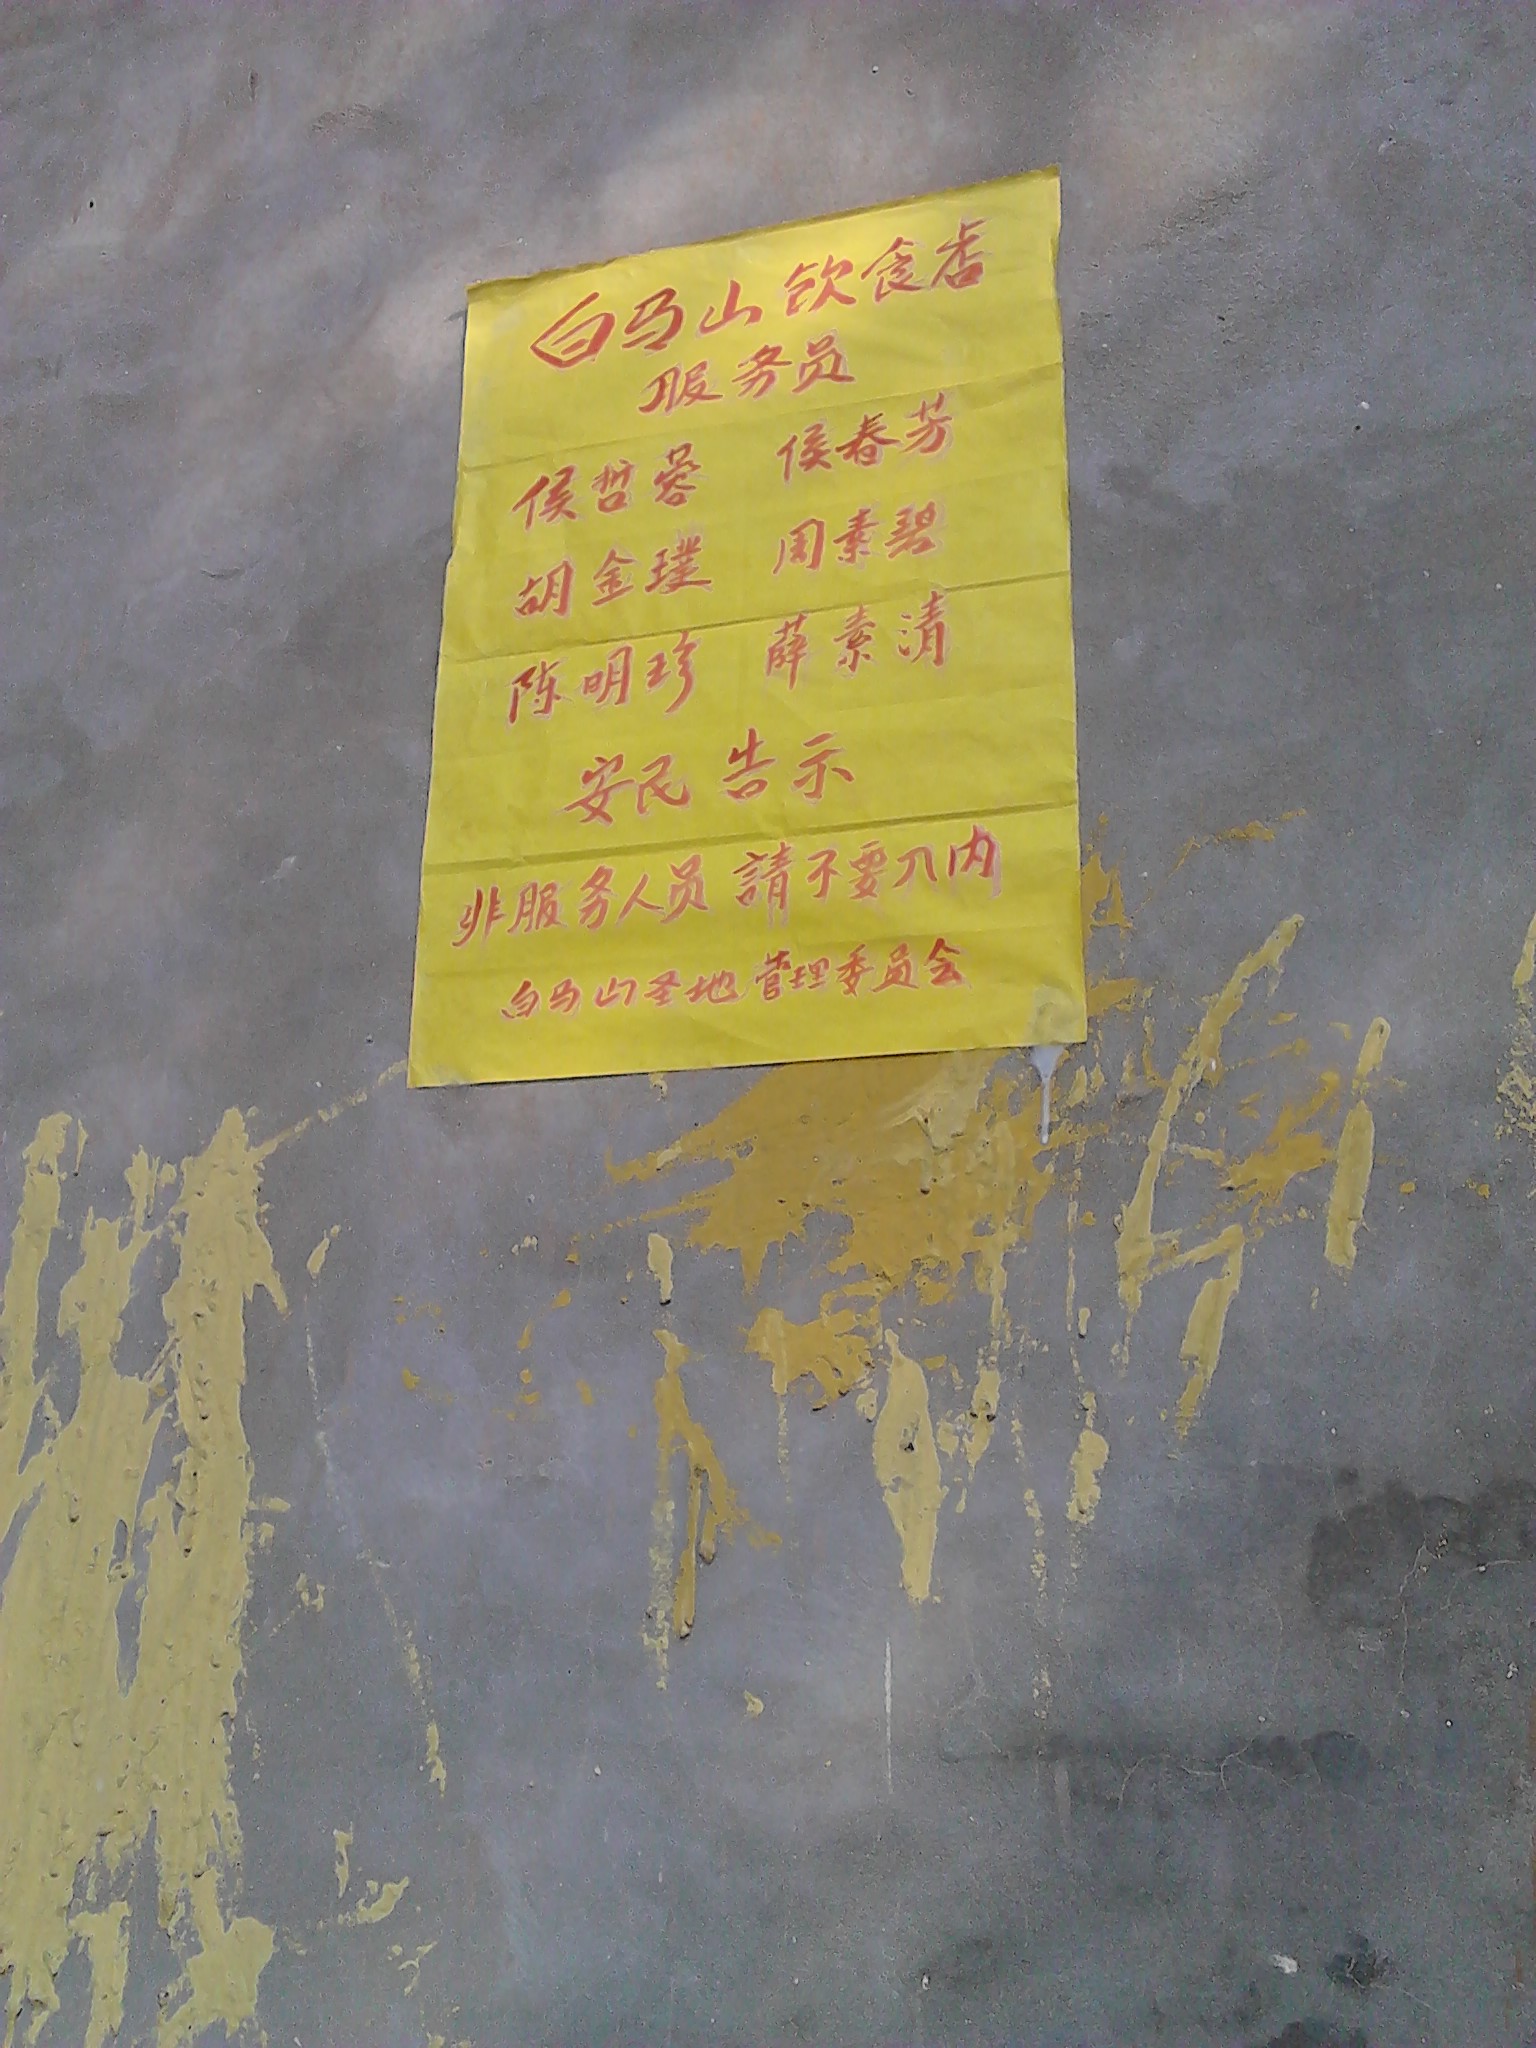 白马山饮食店
服务员
侯哲蓉 侯春芳
胡金璞 周素碧
陈明珍 薛素清
安民告示
非服务人员 請不要入内
白马山圣地管理委员会